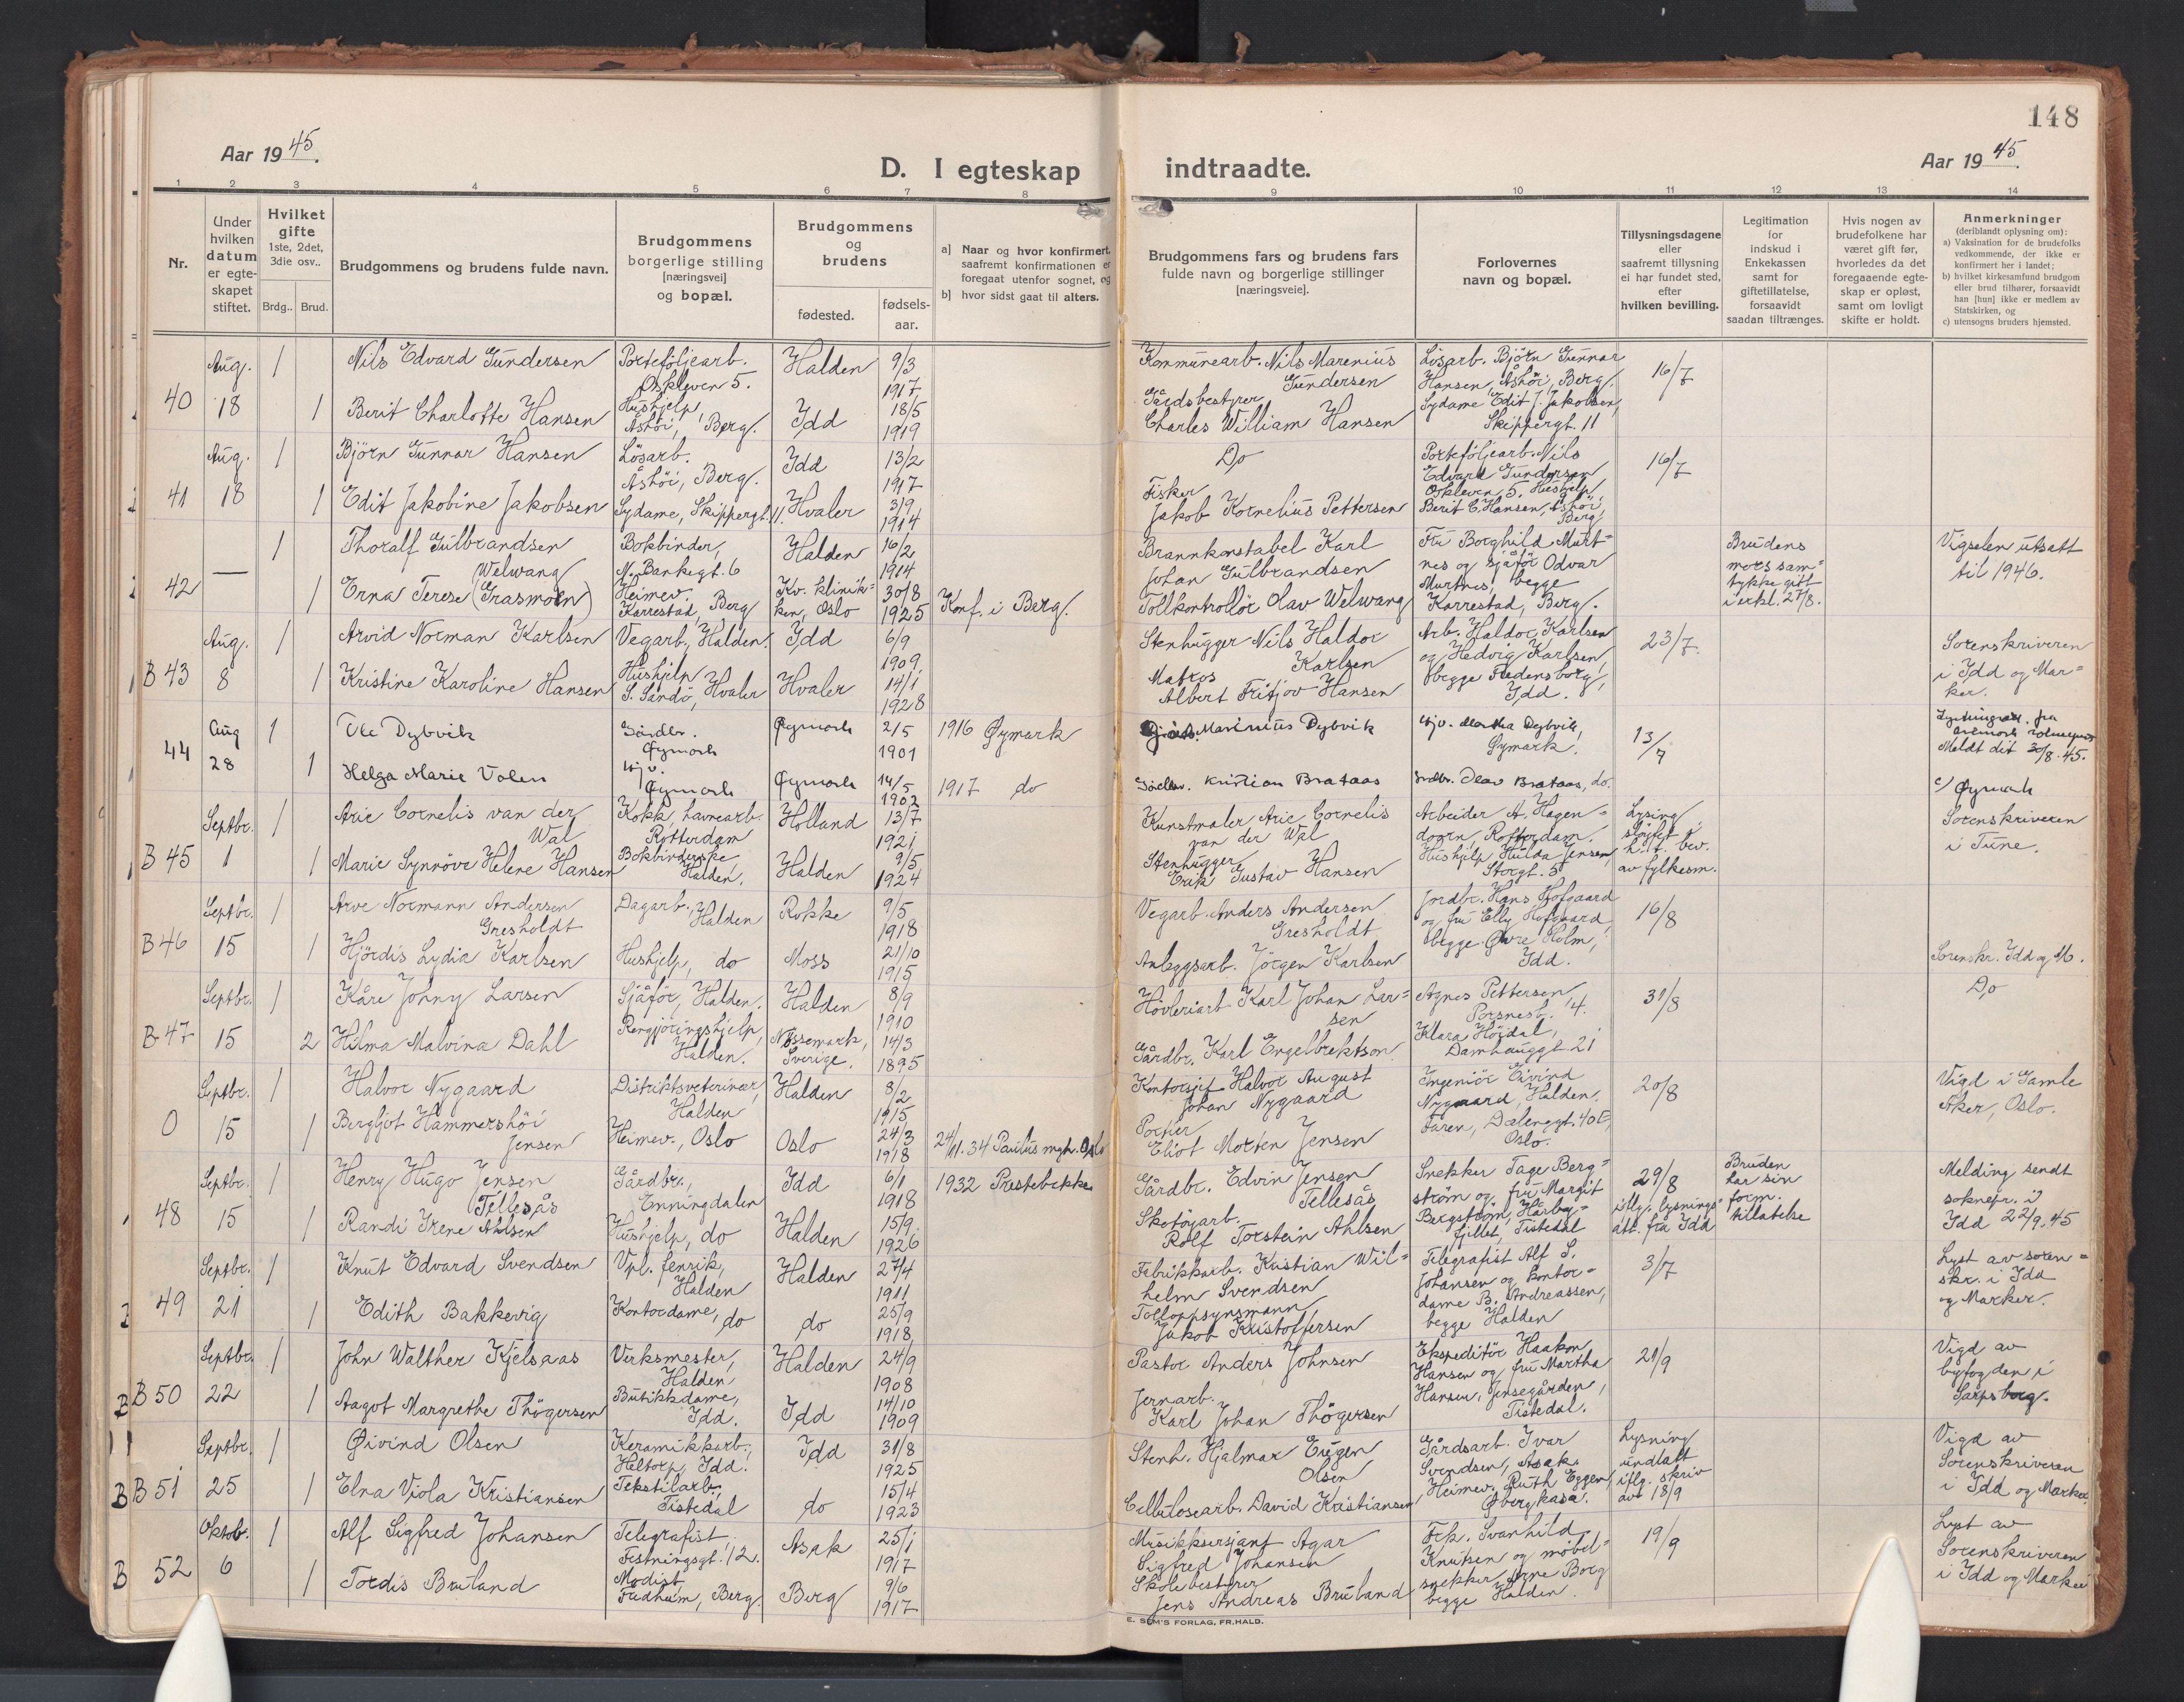 148
Aar 1945.
D. I egteskap indtraadte.
Aar 1945.
1 2 3 4 5 6 7 8 9 10 11 12 13 14
Nr.
Under hvilken datum er egteskapet stiftet.
Hvilket gifte 1ste, 2det, 3die osv..
Brdg.. Brud.
Brudgommens og brudens fulde navn.
Brudgommens borgerlige stilling [næringsvei] og bopæl.
Brudgommens og brudens
fødested.
fødsels-aar.
a] Naar og hvor konfirmert, saafremt konfirmationen er foregaat utenfor sognet, og
b] hvor sidst gaat til alters.
Brudgommens fars og brudens fars fulde navn og borgerlige stillinger [næringsveie].
Forlovernes navn og bopæl.
Tillysningsdagene eller saafremt tillysning ei har fundet sted, efter hvilken bevilling.
Legitimation for indskud i Enkekassen samt for giftetillatelse, forsaavidt saadan tiltrænges.
Hvis nogen av brudefolkene har været gift før, hvorledes da det foregaaende egteskap er opløst, samt om lovligt skifte er holdt.
Anmerkninger
(deriblandt oplysning om):
a) Vaksination for de brudefolks vedkommende, der ikke er konfirmert her i landet;
b) hvilket kirkesamfund brudgom eller brud tilhører, forsaavidt han [hun] ikke er medlem av Statskirken, og
c) utensogns bruders hjemsted.
40 Aug. 18 1 Nils Edvard Gundersen Porteføljearb. Oskleven 5. Halden 9/3 1917 Kommunearb. Nils Marenius Gundersen Løsarb. Bjørn Gunnar Hansen, Åshöi, Berg. 16/7
1 Berit Charlotte Hansen Hushjelp, Åshöi, Berg. Idd 18/5 1919 Gårdsbestyrer Charles William Hansen Sydame Edit J. Jakobsen, Skippergt. 11
41 Aug. 18 1 Björn Gunnar Hansen Lösarb. Åshöi, Berg. Idd 13/2 1917 Do Porteføljearb. Nils Edvard Gundersen Oskleven 5. 16/7
1 Edit Jakobine Jakobsen Sydame, Skippergt. 11. Hvaler 3/9 1914 Fisker Jakob Kornelius Pettersen Hushjelp Berit C. Hansen, Åshöi, Berg.
42 — 1 Thoralf Gulbrandsen Bokbinder, N. Bankegt. 6 Halden 16/2 1914 Brannkonstabel Karl Johan Gulbrandsen Fru Borghild Murtnes og sjåför Odvar Murtnes, begge Karrestad, Berg. Brudens mors samtykke gitt i erkl. 27/8. Vigselen utsatt til 1946.
1 Erna Terese Welwang (Grasmoen) Heimev. Karrestad, Berg Kv. klinikken, Oslo 30/8 1925 Konf. i Berg. Tollkontrollör Olav Welwang
B 43 Aug. 8 1 Arvid Norman Karlsen Vegarb., Halden. Idd 6/9 1909 Stenhugger Nils Haldor Karlsen Arb. Haldor Karlsen og Hedvig Karlsen, begge Fredensborg, Idd. 23/7. Sorenskriveren i Idd og Marker.
1 Kristine Karoline Hansen Hushjelp S. Sandö, Hvaler Hvaler 14/1 1928 Matros Albert Fritjov Hansen
44 Aug 28 1 Ole Dybvik Gårdbr. Øymark Øymark 2/5 1901 1916 Øymark Marinius Dybvik Hjv. Martha Dybvik, Øymark. 13/7 Meldt dit 30/8.45.
1 Helga Marie Volen Hjv. Øymark Øymark 14/5 1902 1917 do Kristian Brataas Olav Brataas, do. c/ Øymark
B 45 Septbr. 1 1 Arie Cornelis van der Wal Kokk, havnearb. Rotterdam Holland 13/7 1921 Kunstmaler Arie Cornelis van der Wal Arbeider A. Hagendoorn, Rotterdam. Lysing sløyfet h.t. bev. av fylkesm. Sorenskriveren i Tune.
1 Marie Synnöve Helene Hansen Bokbinderske Halden. Halden 9/5 1924 Stenhugger Erik Gustav Hansen Hushjelp Hulda Jensen, Storgt. 5
B 46 Septbr. 15 1 Arve Normann Andersen Gresholdt Dagarb., Halden Rokke 9/5 1918 Vegarb. Anders Andersen Gresholdt Jordbr. Hans Hofgaard og fru Elly Hofgaard, begge Øvre Holm, Idd. 16/8
1 Hjördis Lydia Karlsen Hushjelp, do Moss 21/10 1915 Anleggsarb. Jörgen Karlsen Sorenskr. Idd og M.
B 47 Septbr. 15 1 Kåre Johny Larsen Sjåför, Halden. Halden 8/9 1910 Hövleriarb. Karl Johan Larsen Agnes Pettersen Porsnesb. 4. 31/8 Do
2 Hilma Malvina Dahl Rengjöringshjelp, Halden. Nössemark, Sverige. 14/3 1895 Gårdbr. Karl Engelbrektson Klara Höjdal, Damhauggt. 21
0 Septbr. 15 1 Halvor Nygaard Distriktsveterinær, Halden Halden 3/2 1915 Kontorsjef Halvor August Johan Nygaard Ingeniör Eivind Nygaard, Halden. 20/8 Vigd i Gamle Aker, Oslo.
1 Bergljot Hammershöi Jensen Heimev., Oslo Oslo 24/3 1918 24/11.34 Paulus mgh. Oslo Portier Eliot Morten Jensen Faren, Dælenggt. 40E, Oslo.
48 Septbr. 15 1 Henry Hugo Jensen Tellesås Gårdbr., Enningdalen Idd 6/1 1918 1932 Prestebakke Gårdbr. Edvin Jensen Tellesås Snekker Tage Bergström og fru Margit Bergström, Hårbyfjellet, Tistedal 29/8 iflg. lysningsatt. fra Idd Bruden har sin form. tillatelse Melding sendt soknepr. i Idd 22/9.45
1 Randi Irene Ahlsen Hushjelp, do Halden 15/9 1926 Skotöyarb. Rolf Torstein Ahlsen
49 Septbr. 21 1 Knut Edvard Svendsen Vpl. fenrik, Halden Halden 27/4 1911 Fabrikkarb. Kristian Wilhelm Svendsen Telegrafist Alf S. Johansen og kontordame B. Andreassen, begge Halden 3/7 Lyst av sorenskr. i Idd og Marker.
1 Edith Bakkevig Kontordame, do do 25/9 1918 Tolloppsynsmann, Jakob Kristoffersen
B 50 Septbr. 22 1 John Walther Kjelsaas Verksmester, Halden Halden 24/9 1908 Pastor Anders Johnsen Ekspeditör Haakon Hansen og fru Martha Hansen, Jensegården, Tistedal. 21/9 Vigd av byfogden i Sarpsborg.
1 Aagot Margrethe Thögersen Butikkdame, Idd. Idd 14/10 1909 Jernarb. Karl Johan Thögersen
B 51 Septbr. 25 1 Øivind Olsen Keramikkarb., Heltorp, Idd. Idd 31/8 1925 Stenh. Hjalmar Eugen Olsen Gårdsarb. Ivar Svendsen, Asak. Lysning undlatt iflg. skriv av 18/9 Vigd av Sorenskriveren i Idd og Marker
1 Elna Viola Kristiansen Tekstilarb., Tistedal do 15/4 1923 Cellulosearb. David Kristiansen Heimev. Ruth Eggen, Øbergkasa.
B 52 Oktob. 6 1 Alf Sigfred Johansen Telegrafist Festningsgt. 12. Asak 25/1 1917 Musikksersjant Agar Sigfred Johansen Frk. Svanhild Knutsen og möbelsnekker Arne Borg begge Halden. 19/9 Lyst av Sorenskriveren i Idd og Marker
1 Tordis Bruland Modist Fredheim, Berg. Berg 9/6 1917 Skolebestyrer Jens Andreas Bruland
E. SEM'S FORLAG, FR.HALD.